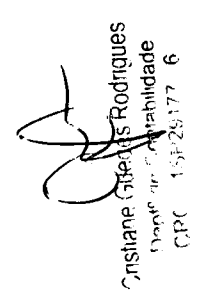 Cristiane Guedes Rodrigues
Contabilidade
CRC 1SP29177 6